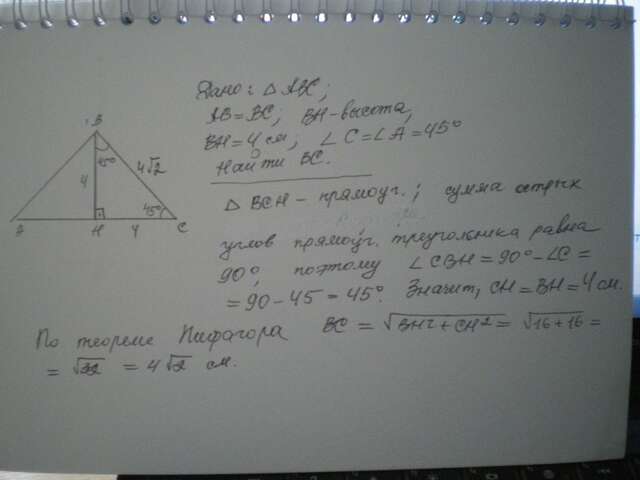 Дано: △ ABC;
AB=BC; BH-высота;
BH=4 см; ∠C=∠A=45°
Найти BC.
B
45°
4√2
4
45°
A
H
4
C
△ BCH - прямоуг.; сумма острых
углов прямоуг. треугольника равна
90°, поэтому ∠CBH=90°-∠C=
=90-45=45°. Значит, CH=BH=4 см.
По теореме Пифагора BC = √BH²+CH² = √16+16 =
= √32 = 4√2 см.